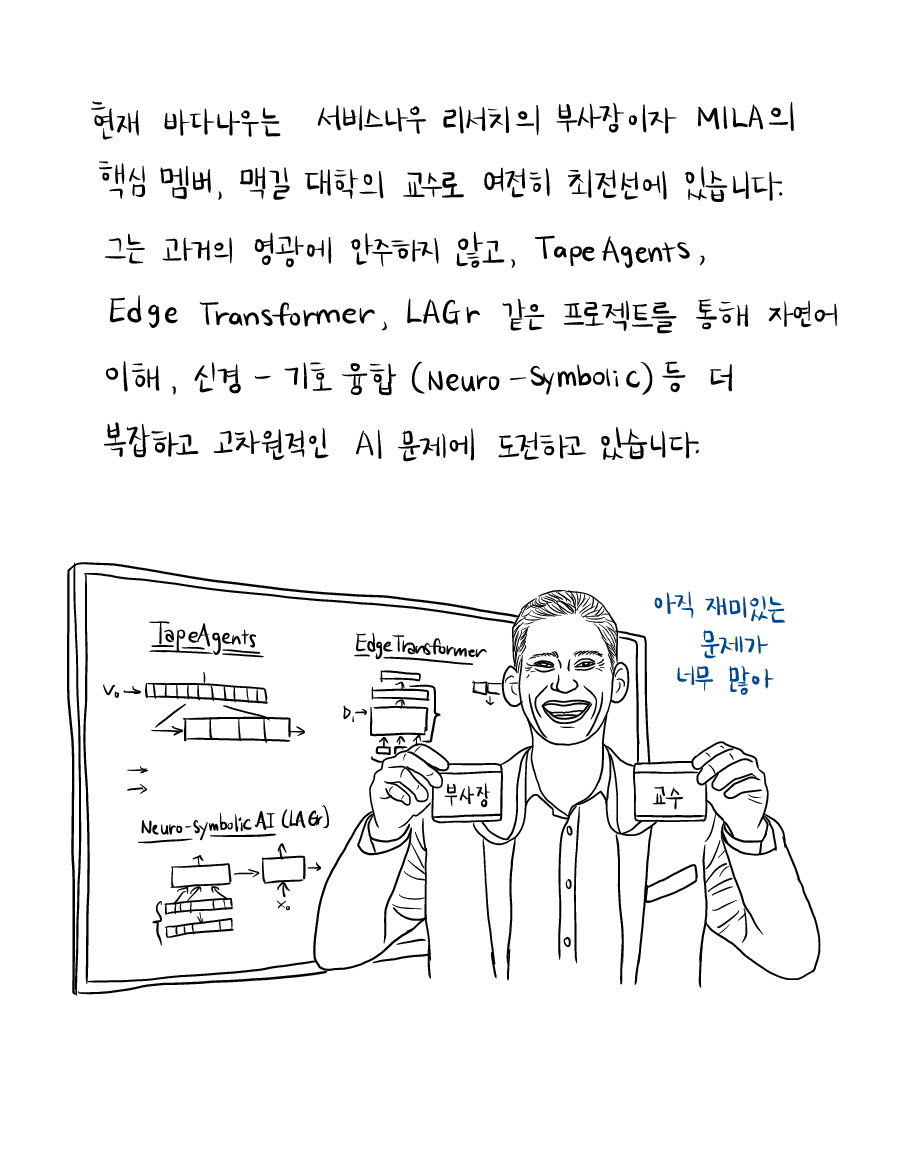 현재 바다나우는 서비스나우 리서치의 부사장이자 MILA의
핵심 멤버, 맥길 대학의 교수로 여전히 최전선에 있습니다.
그는 과거의 영광에 안주하지 않고, TapeAgents,
Edge Transformer, LAGr 같은 프로젝트를 통해 자연어
이해, 신경 - 기호 융합 (Neuro-Symbolic) 등 더
복잡하고 고차원적인 AI 문제에 도전하고 있습니다.
아직 재미있는
문제가
너무 많아
TapeAgents
Edge Transformer
V₀
Dᵢ
부사장
교수
Neuro-Symbolic AI (LAGr)
X₀